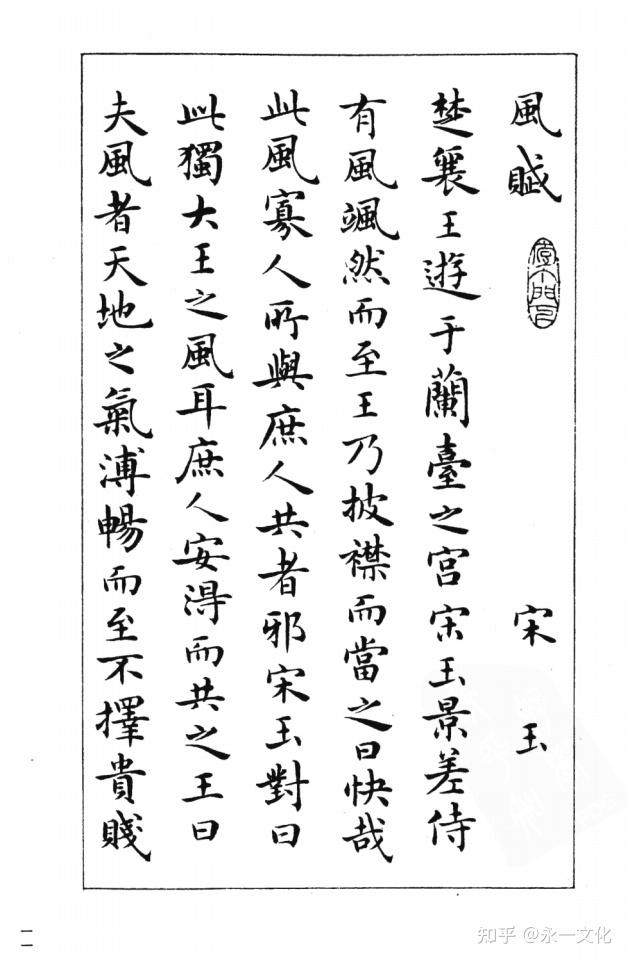 風賦 宋玉
楚襄王遊于蘭臺之宫宋玉景差侍
有風颯然而至王乃披襟而當之曰快哉
此風寡人所與庶人共者邪宋玉對曰
此獨大王之風耳庶人安得而共之王曰
夫風者天地之氣溥暢而至不擇貴賤
一一
知乎 @永一文化